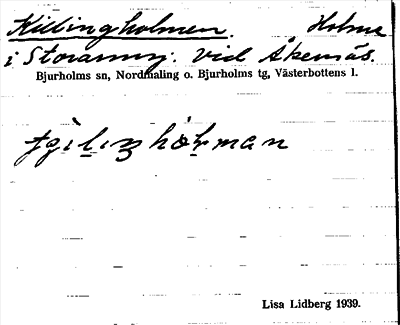 Killingholmen. Holme
i Storarmen: vid Åkernäs.
Bjurholms sn, Nordmaling o. Bjurholms tg, Västerbottens l.
Lisa Lidberg 1939.